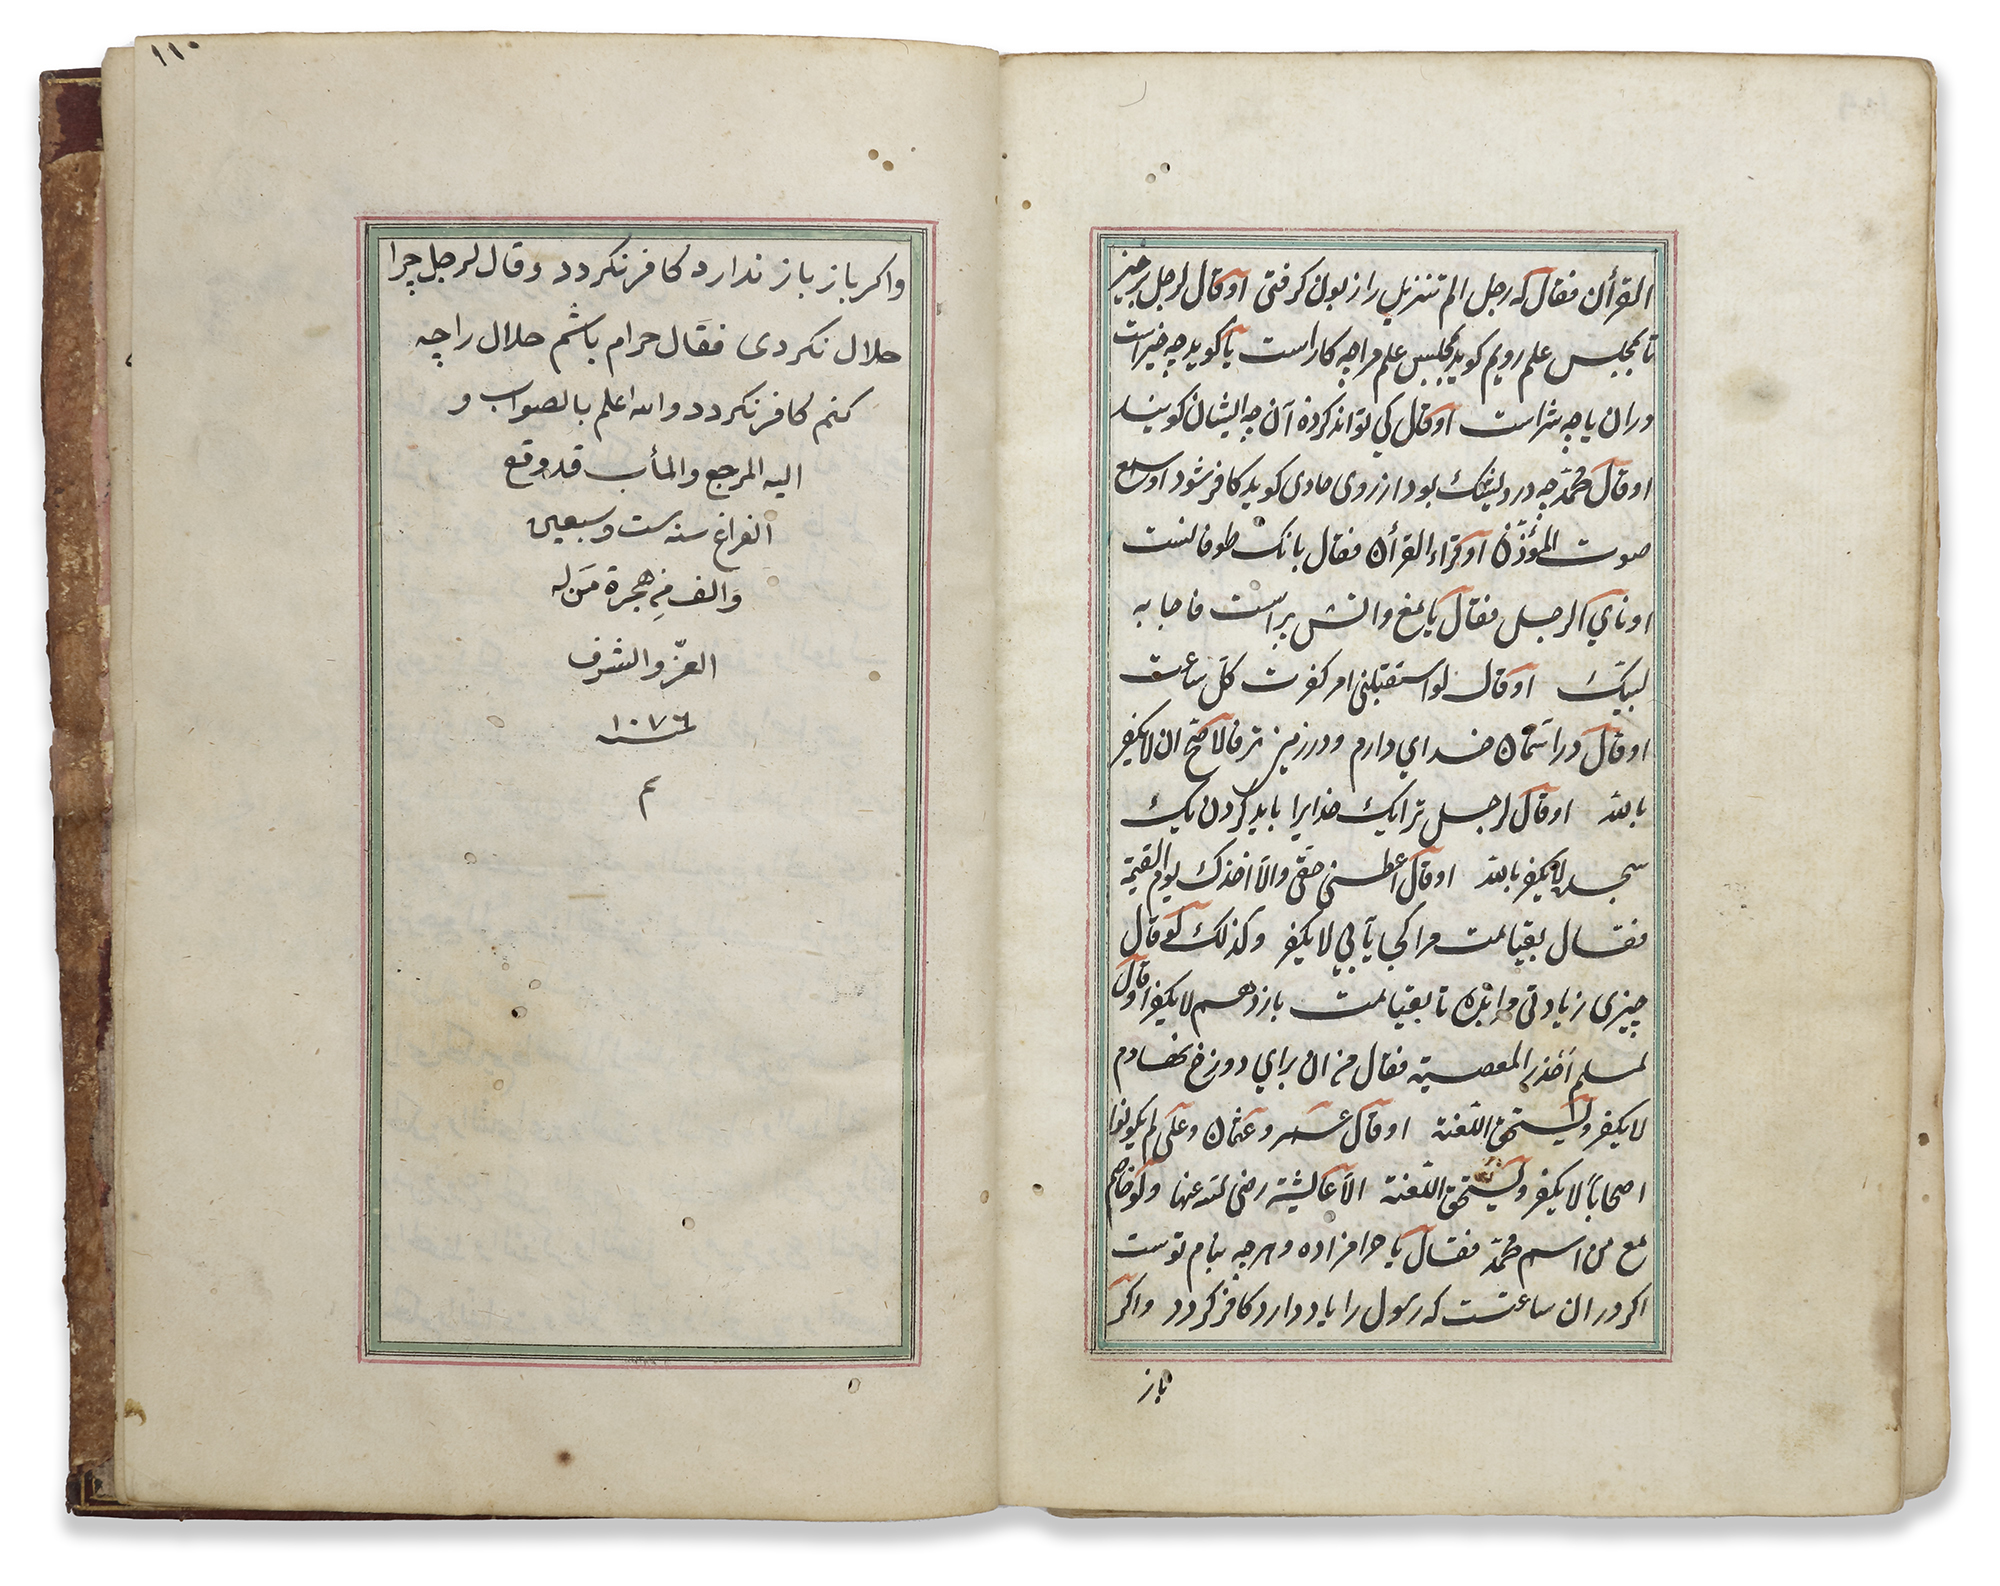 القرأن فقال که رجل الم تنزیل را زبون کرفتی اوقال لرجل برخیز
تا بمجلس علم رویم کوید بمجلس علم مرا چه کار است یا کوید چه خیر است
دران یا چه شر است اوقال کی تواند کردن آن چه ایشان کویند
اوقال محمد چه درویشک بود از روی کوید کافر شود اوسمع
صوت المؤذن اوقراء القرأن فقال بانک طوفانست
اونادي الرجل فقال یا مغ واتش پراست فاجابه
لبیک اوقال لو استقبلنی امر کفرت کل ساعت
اوقال در اسمان خداي دارم ودر زمین ترا فالاصح ان لا یکفر
بالله اوقال لرجل ترا یک خدایرا باید کردن یک
سجده لا یکفر بالله اوقال اعطنی حقی والا اخذک یوم القیمة
فقال بقیامت مرا کجا یابي لا یکفر وکذلک لو قال
چیزی زیادتی مرا بده تا بقیامت باز دهم لا یکفر اوقال
لمسلم اخذ المعصیة فقال من ان براي دوزخ نهادم
لا یکفر ولا یستحق اللعنة اوقال عمر وعثمان وعلی لم یکونوا
اصحابا لا یکفر ویستحق اللعنة الا عایشة رضی الله عنها ولو خاصم
مع من اسم محمد فقال یا حرامزاده وهرچه بنام توست
اکر دران ساعت که رسول را یاد دارد کافر کردد واکر
باز
١١٠
واکر باز باز ندارد کافر نکردد وقال لرجل چرا
حلال نکردی فقال حرام باشم حلال را چه
کنم کافر نکردد والله اعلم بالصواب و
الیه المرجع والمأب قد وقع
الفراغ سنه ست وسبعین
والف من هجرة من له
العز والشرف
سنه ١٠٧٦
م